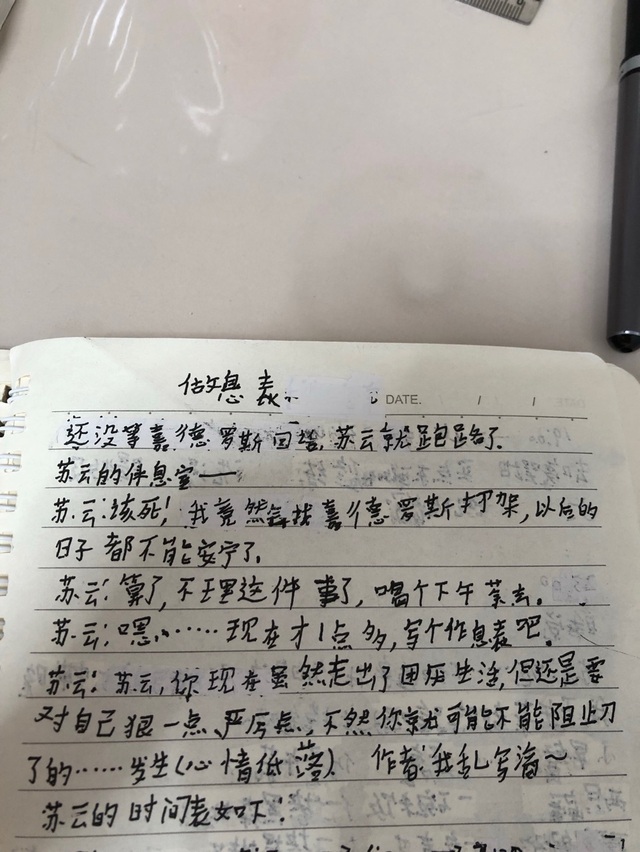 作息表 DATE. / /
还没等嘉德罗斯回答,苏云就跑路了.
苏云的休息室——
苏云:该死!我竟然会找嘉德罗斯打架,以后的
日子都不能安宁了.
苏云:算了,不理这件事了,喝个下午茶去.
苏云:嘿……现在才1点多,写个作息表吧.
苏云:苏云,你现在虽然走出了困境生活,但还是要
对自己狠一点、严厉点、不然你就可能不能阻止
了的……发生(心情低落) 作者:我乱写滴~
苏云的时间表如下: